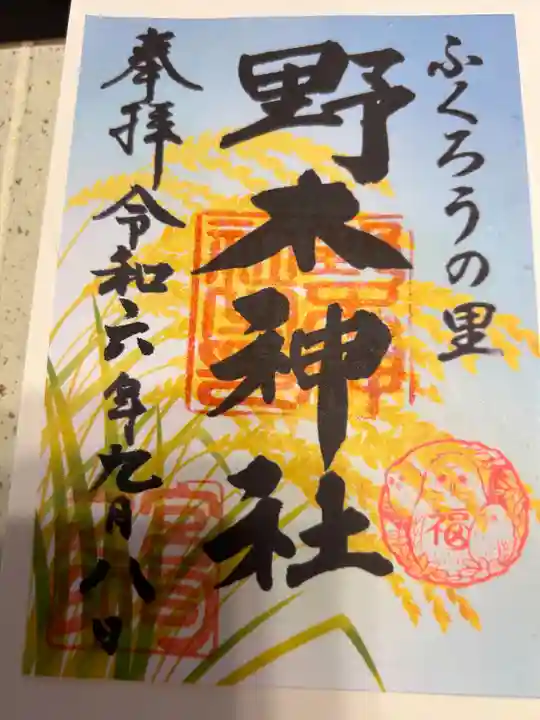 ふくろうの里
野木神社
奉拝 令和六年九月八日
福